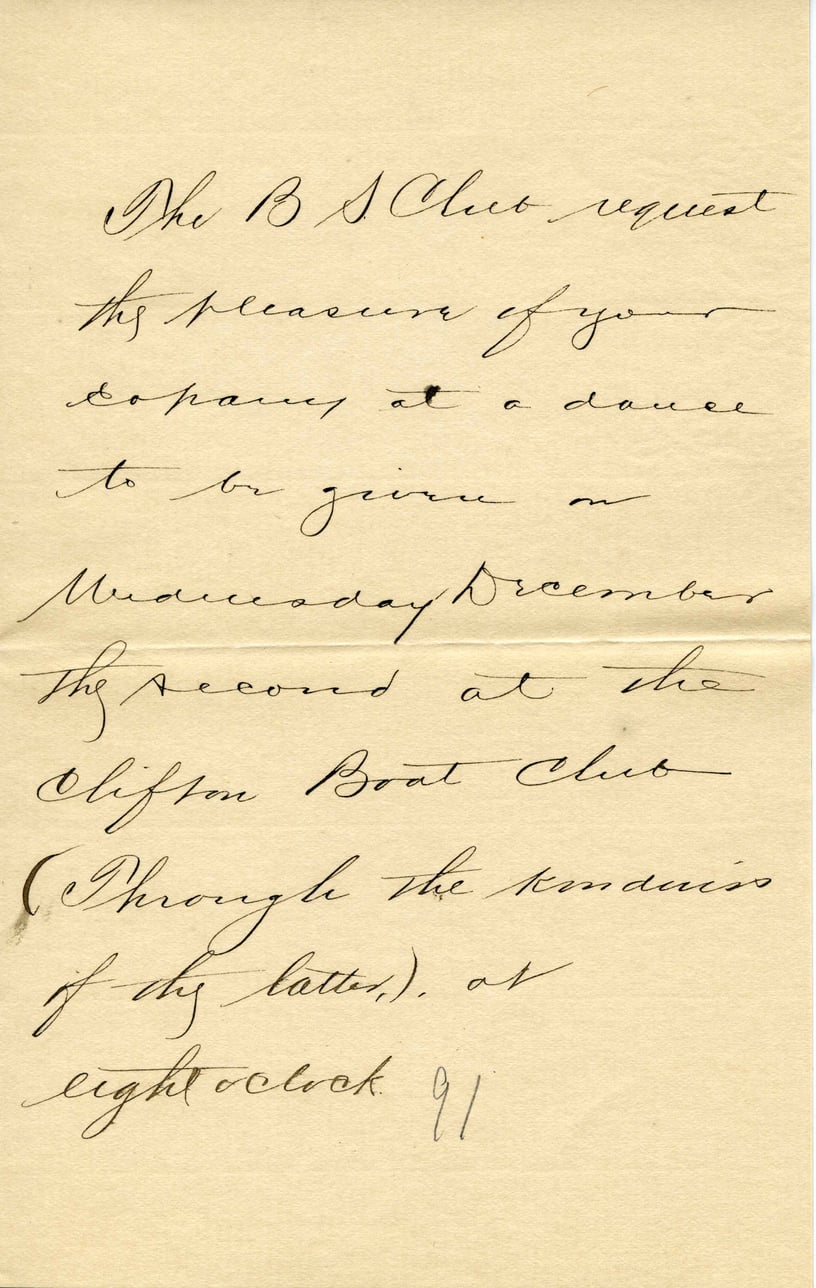 The B S. Club request
the pleasure of your
copany at a dance
to be given on
Wednesday December
the second at the
Clifton Boat Club
(Through the kindness
of the latter,). at
eight o'clock. 91